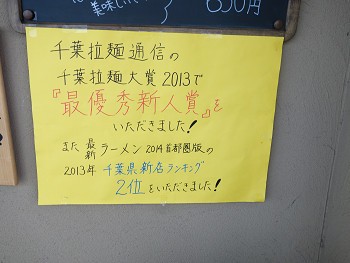 美味しい
650円
千葉拉麺通信の
千葉拉麺大賞2013で
『最優秀新人賞』を
いただきました!
また最新ラーメン2014首都圏版の
2013年 千葉県新店ランキング
2位をいただきました!